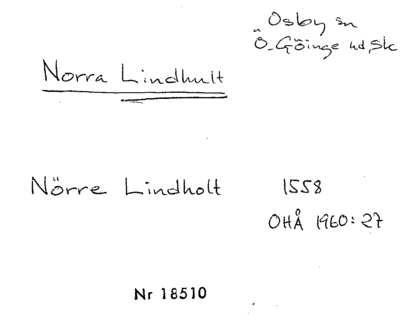 Osby sn
Ö. Göinge hd, Sk
Norra Lindhult
Nörre Lindholt 1558
OHÅ 1960: 27
Nr 18510